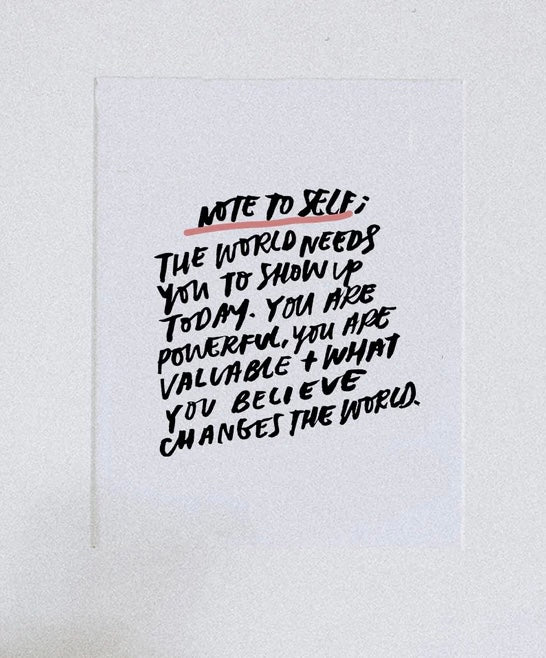 NOTE TO SELF;
THE WORLD NEEDS
YOU TO SHOW UP
TODAY. YOU ARE
POWERFUL, YOU ARE
VALUABLE + WHAT
YOU BELIEVE
CHANGES THE WORLD.